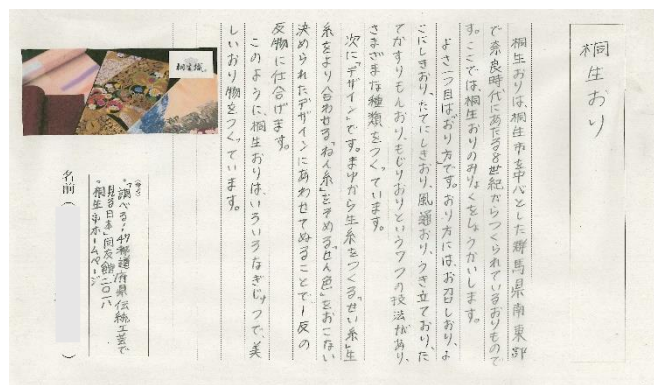 桐生おり
桐生おりは、桐生市を中心とした群馬県南東部
で奈良時代にあたる8世紀からつくられているおりもので
す。ここでは、桐生おりのみりょくをしょうかいします。
よさ一つ目は「おり方」です。おり方には、お召しおり、よ
こにしきおり、たてにしきおり、風通おり、うき立ており、た
てかすりもんおり、もじりおりという7つの技法があり、
さまざまな種類をつくっています。
次に「デザイン」です。まゆから生糸をつくる「せい糸」生
糸をより合わせる「ねん糸」をそめる「せん色」をおこない
決められたデザインにあわせてぬることで1反の
反物に仕合げます。
このように、桐生おりは、いろいろなぎじゅつで、美
しいおり物をつくっています。
桐生織
・「調べる!47都道府県伝統工芸で
見る日本」同友館二〇一八
・桐生市ホームページ
名前（　　）